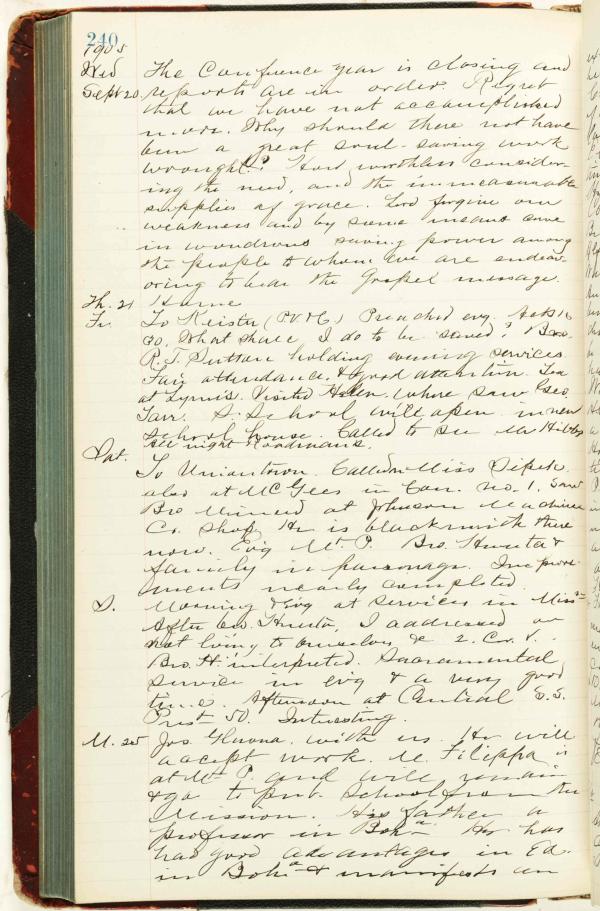 240
1905
Wed The Conference year is closing and
Sept 20. reports are in order. Regret
that we have not accomplished
more. Why should there not have
been a great soul-saving work
wrought? How worthless consider-
ing the need, and the unmeasurable
supplies of grace. Lord forgive our
weakness and by some means come
in wondrous saving power among
the people to whom we are endeav-
oring to bear the Gospel message.
Th. 21 Home
Fr. To Keister (P.V. & C.) Preached evg. Acts 16
30. What shall I do to be saved? Bro.
R. T. Dutton holding evening services.
Fair attendance & good attention. Tea
at Lynns. Visited Helen where saw Geo.
Tarr. S. School will open in new
school house. Called to see Mr Hibbs
all night Hoodmans.
Sat. To Uniontown. Called on Miss Dipek.
also at McGees in Con. No. 1. Saw
Bro at Johnson Machine
Co. shop. He is blacksmith there
now. Evg Mt. P. Bro. Husta &
family in parsonage. Improve-
ments nearly completed.
S. Morning & Evg at services in Missn
After bro. Husta, I addressed on
not living to ourselves &c 2. Cor. V.
Bro. H. interpreted. Sacramental
service in evg & a very good
time. Afternoon at Central S.S.
Prest 50. Interesting.
M. 25 Jos. with us. He will
accept work. M. Filippa is
at Mt P. and will remain
& go to pub. School from the
Mission. His father a
professor in Boha. He has
had good advantages in Ed.
in Boha & manifests an